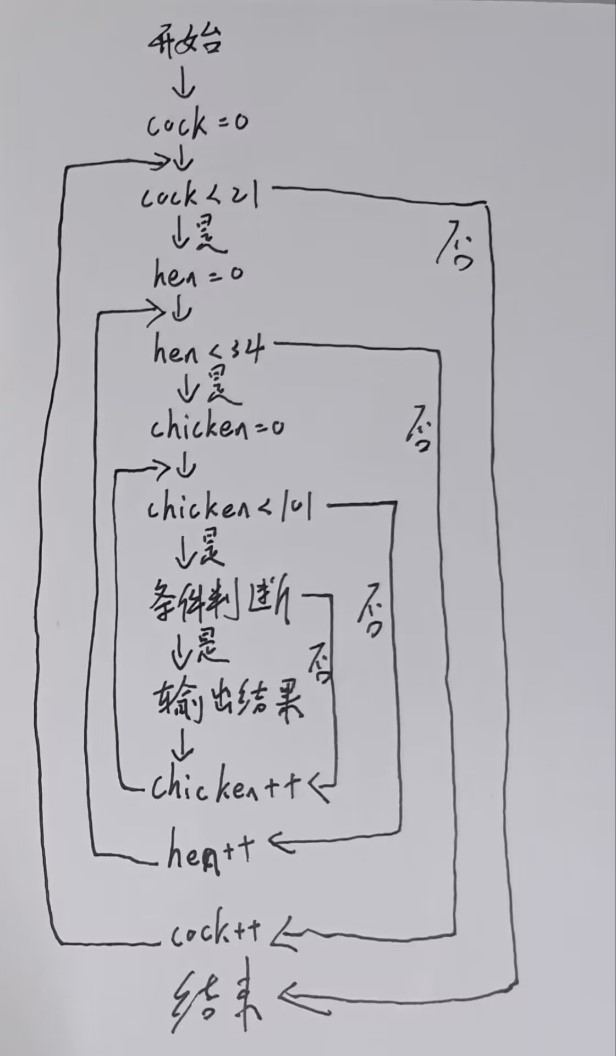 开始
cock=0
cock<21
是
否
hen=0
hen<34
是
否
chicken=0
chicken<101
是
否
条件判断
是
否
输出结果
chicken++
hen++
cock++
结束